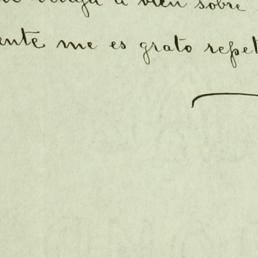 tenga á bien sobre
ente me es grato repet